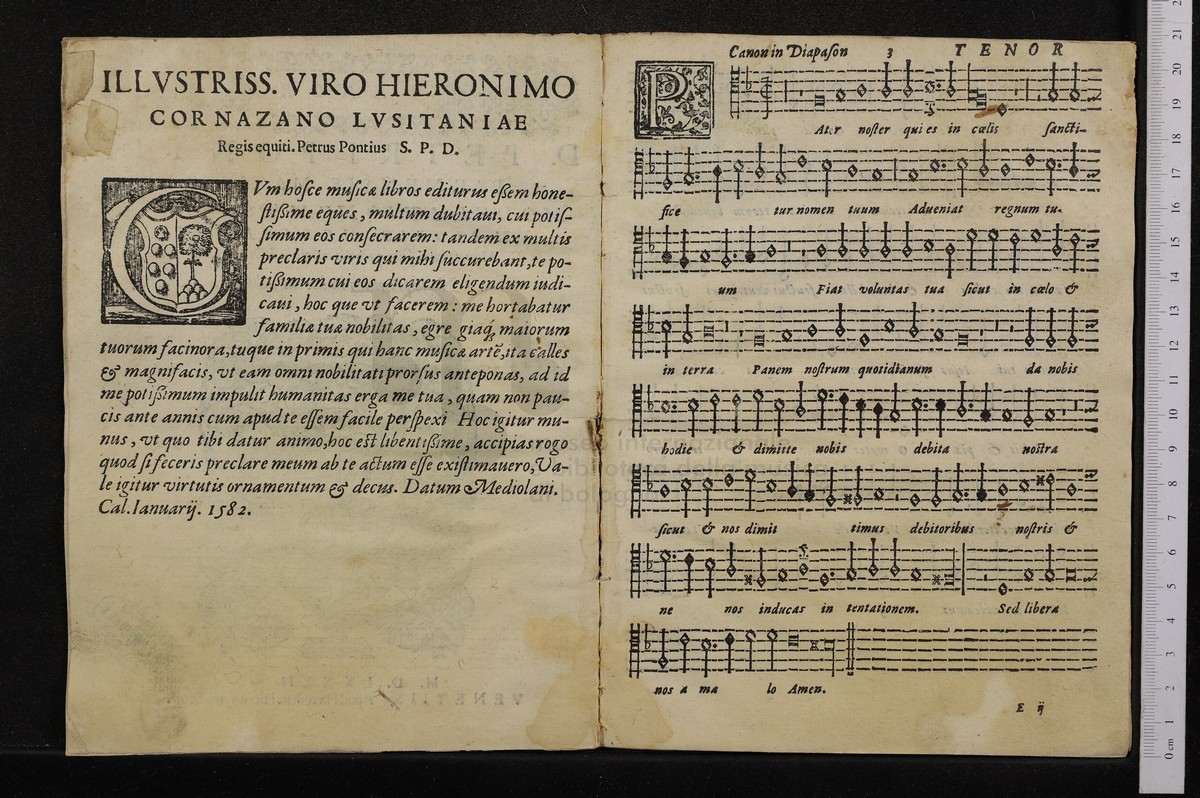 ILLVSTRISS. VIRO HIERONIMO
CORNAZANO LVSITANIAE
Regis equiti. Petrus Pontius S. P. D.
CVm hosce musicæ libros editurus essem hone-
stissime eques, multum dubitaui, cui potis-
simum eos consecrarem: tandem ex multis
preclaris viris qui mihi succurebant, te po-
tissimum cui eos dicarem eligendum iudi-
caui, hoc que vt facerem: me hortabatur
familiæ tuæ nobilitas, egre giaq́, maiorum
tuorum facinora, tuque in primis qui hanc musicæ artē, ita calles
& magnifacis, vt eam omni nobilitati prorsus anteponas, ad id
me potissimum impulit humanitas erga me tua, quam non pau-
cis ante annis cum apud te essem facile perspexi Hoc igitur mu-
nus, vt quo tibi datur animo, hoc est libentissime, accipias rogo
quod si feceris preclare meum ab te actum esse existimauero, Va-
le igitur virtutis ornamentum & decus. Datum Mediolani.
Cal. Ianuarij. 1582.
Canon in Diapason 3 TENOR
PAter noster qui es in cœlis sancti-
fice tur nomen tuum Adueniat regnum tu-
um Fiat voluntas tua sicut in cœlo &
in terra Panem nostrum quotidianum da nobis
hodie & dimitte nobis debita nostra
sicut & nos dimit timus debitoribus nostris &
ne nos inducas in tentationem. Sed libera
nos a ma lo Amen.
E ij